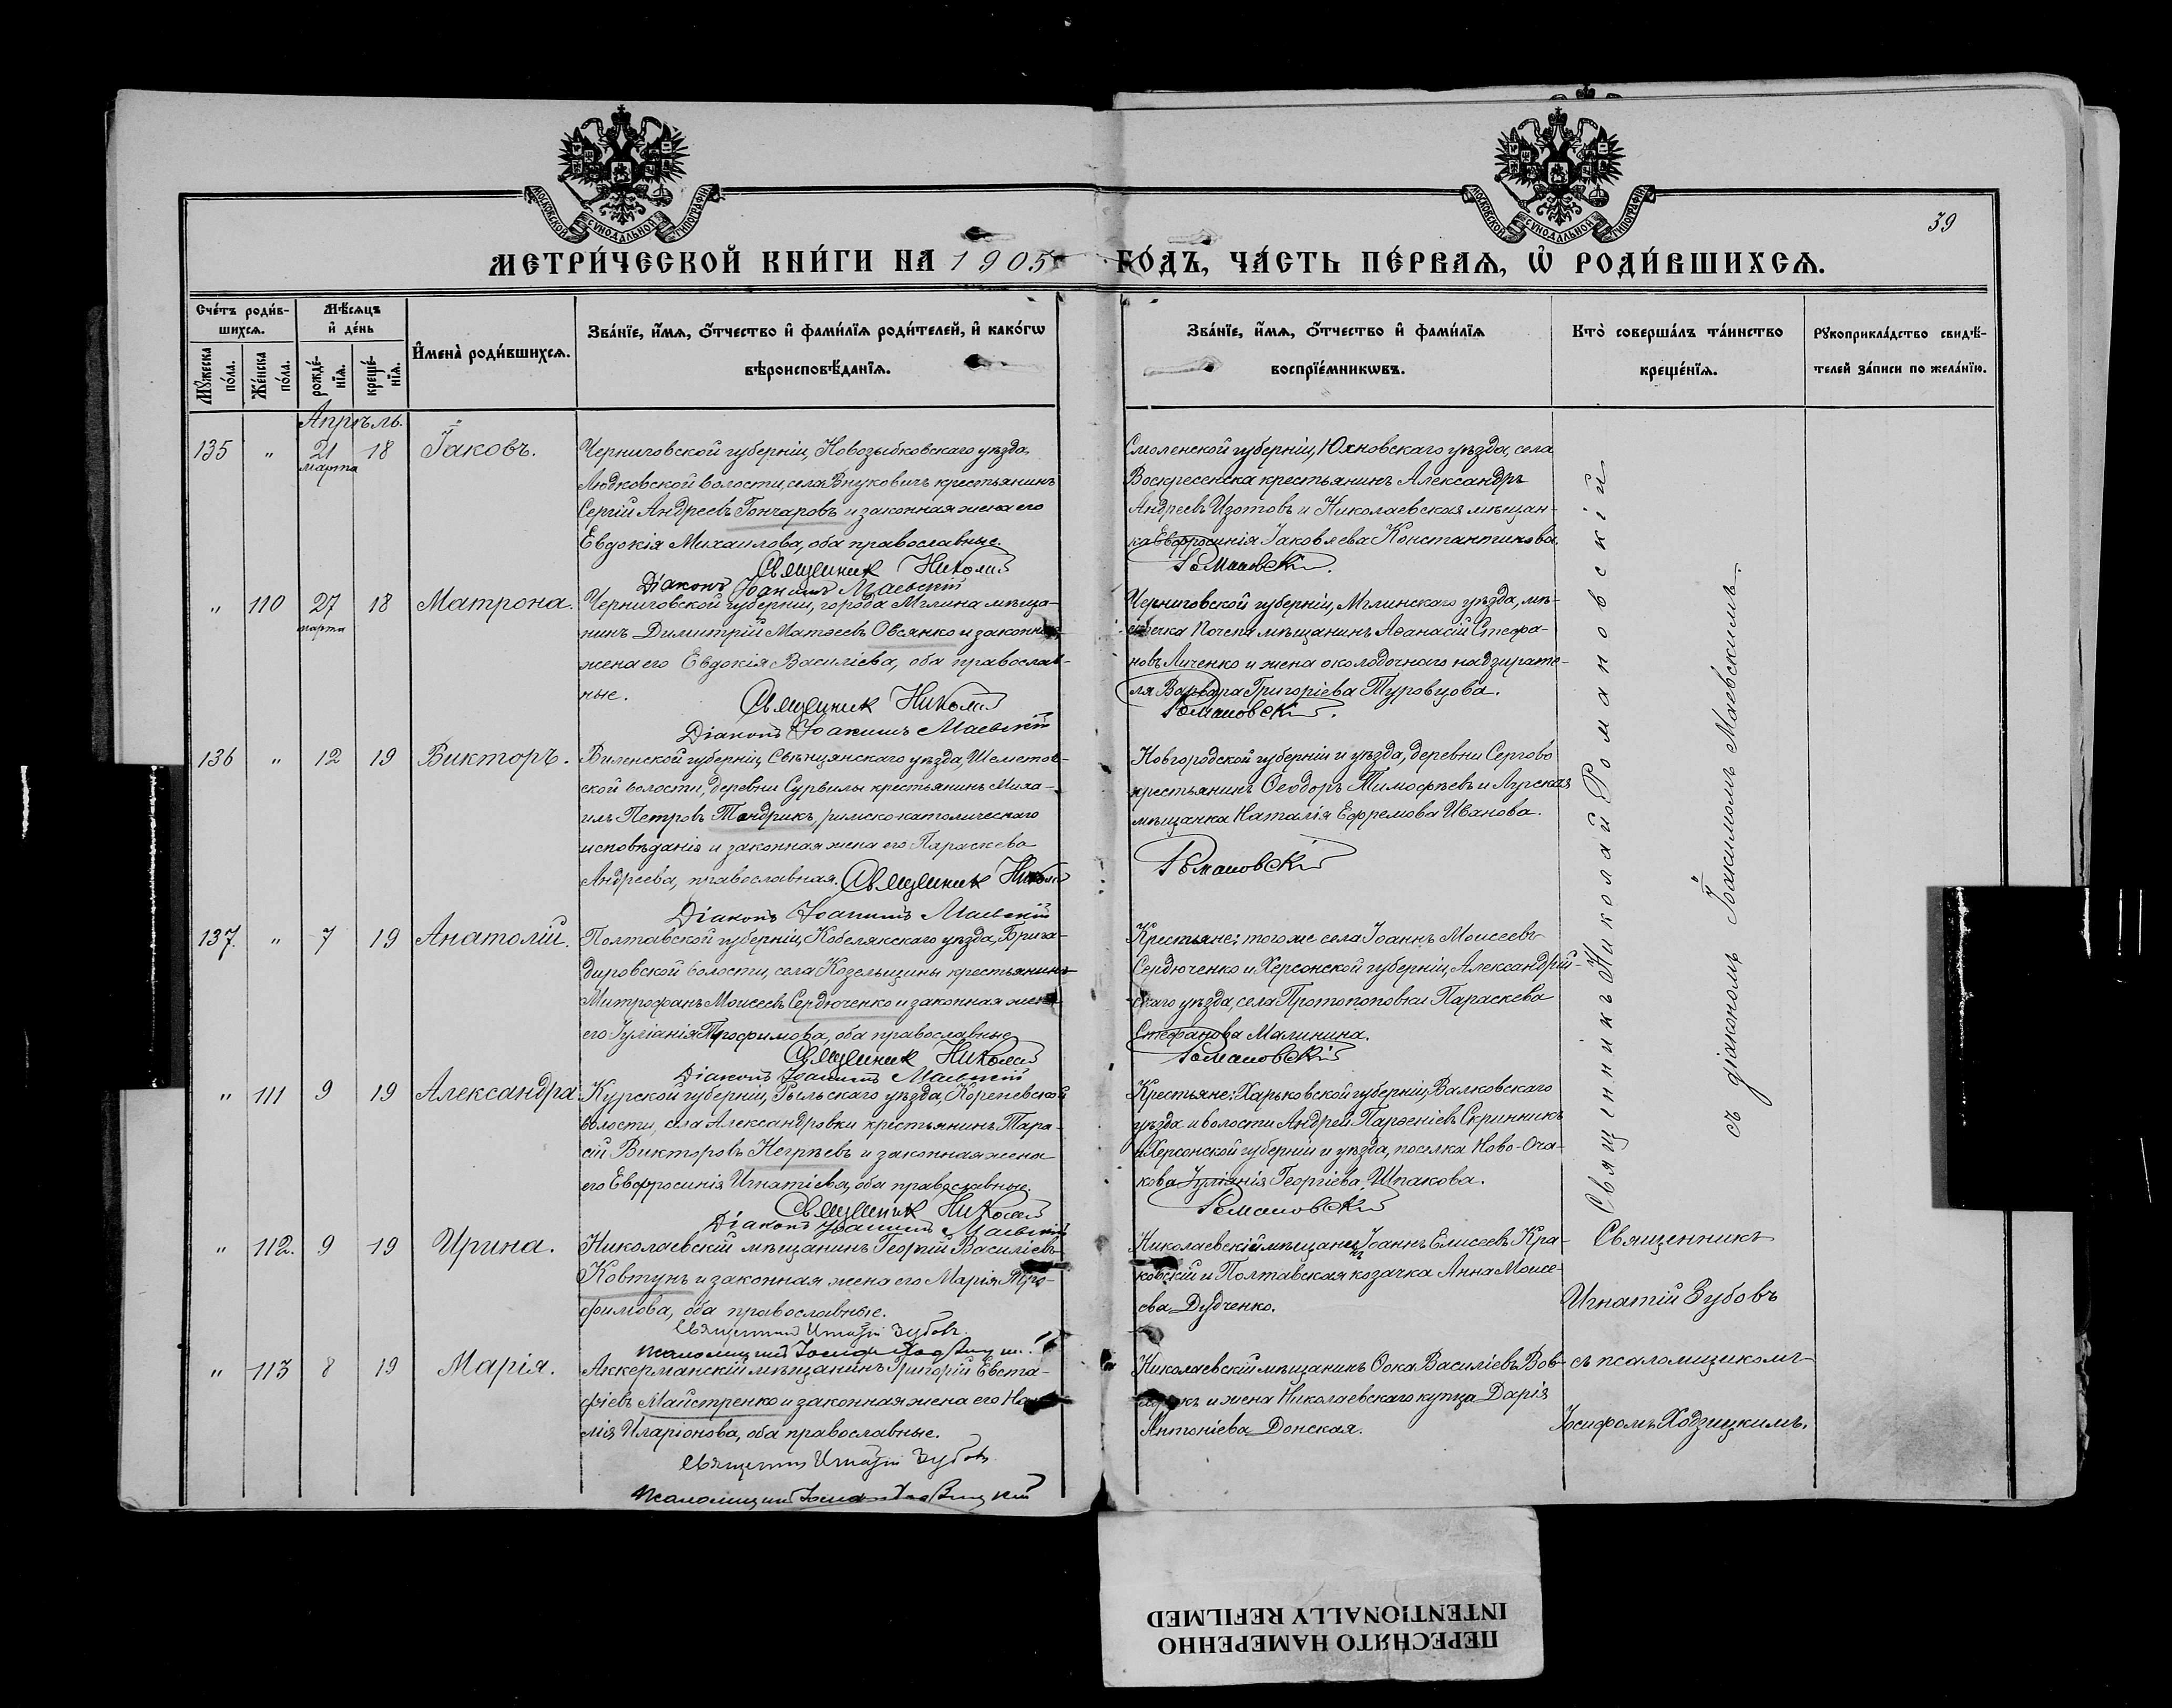 МОСКОВСКОЙ СѴНОДАЛЬНОЙ ТИПОГРАФІИ
МОСКОВСКОЙ СѴНОДАЛЬНОЙ ТИПОГРАФІИ
39
МЕТРИ́ЧЕСКОЙ КНИ́ГИ НА 1905 ГО́ДЪ, ЧА́СТЬ ПЕ́РВАѦ, Ѡ҆ РОДИ́ВШИХСѦ.
Сче́тъ роди́в-
шихсѧ.
Мꙋ́жеска по́ла.
Же́нска по́ла.
Мѣ́сѧцъ
и҆ де́нь
рожде́-нїѧ.
креще́-нїѧ.
И҆мена̀ роди́вшихсѧ.
Зва́нїе, и҆́мѧ, ѻ҆́тчество и҆ фами́лїѧ роди́телей, и҆ како́гѡ
вѣроисповѣ́данїѧ.
Зва́нїе, и҆́мѧ, ѻ҆́тчество и҆ фами́лїѧ
воспрїе́мникѡвъ.
Кто̀ соверша́лъ та́инство
креще́нїѧ.
Рꙋкоприкла́дство свидѣ́-
телей за́писи по жела́нїю.
Апрѣль.
135 " 21 марта 18 Іаковъ.
Черниговской губерніи, Новозыбковскаго уѣзда,
Людковской волости, села Внуковичъ крестьянинъ
Сергій Андреевъ Гончаровъ и законная жена его
Евдокія Михаилова, оба православные.
Священникъ Николай
Діаконъ Іоакимъ Маевскій
Смоленской губерніи, Юхновскаго уѣзда, села
Воскресенска крестьянинъ Александръ
Андреевъ Изотовъ и Николаевская мѣщан-
ка Евфросинія Іаковлева Константинова.
Романовскій.
" 110 27 марта 18 Матрона.
Черниговской губерніи, города Мглина мѣща-
нинъ Димитрій Матѳеевъ Овсянко и законная
жена его Евдокія Василіева, оба православ-
ные.
Священникъ Николай
Діаконъ Іоакимъ Маевскій
Черниговской губерніи, Мглинскаго уѣзда, мѣ-
стечка Почепа мѣщанинъ Аѳанасій Стефа-
новъ Личенко и жена околодочнаго надзирате-
ля Варвара Григоріева Туровцова.
Романовскій.
136 " 12 19 Викторъ.
Виленской губерніи, Свѣнцянскаго уѣзда, Шеметов-
ской волости, деревни Сурвилы крестьянинъ Миха-
илъ Петровъ Тондрикъ, римско-католическаго
исповѣданія и законная жена его Параскева
Андреева, православная. Священникъ Николай
Діаконъ Іоакимъ Маевскій
Новгородской губерніи и уѣзда, деревни Сергово
крестьянинъ Ѳеодоръ Тимофѣевъ и Лугская
мѣщанка Наталія Ефремова Иванова.
Романовскій
137. " 7 19 Анатолій.
Полтавской губерніи, Кобелякскаго уѣзда, Брига-
дировской волости, села Козельщины крестьянинъ
Митрофанъ Моисеевъ Сердюченко и законная жена
его Іуліанія Трофимова, оба православные.
Священникъ Николай
Діаконъ Іоакимъ Маевскій
Крестьяне: того же села Іоаннъ Моисеевъ
Сердюченко и Херсонской губерніи, Александрій-
скаго уѣзда, села Протопоповки Параскева
Стефанова Малинина.
Романовскій
" 111 9 19 Александра
Курской губерніи, Рыльскаго уѣзда, Кореневской
волости, села Александровки крестьянинъ Тара-
сій Викторовъ Негрѣевъ и законная жена
его Евфросинія Игнатіева, оба православные.
Священникъ Николай
Діаконъ Іоакимъ Маевскій
Крестьяне: Харьковской губерніи, Валковскаго
уѣзда и волости Андрей Парѳеніевъ Скринникъ
и Херсонской губерніи и уѣзда, поселка Ново-Оча-
кова Іуліанія Георгіева Шпакова.
Романовскій
Священникъ Николай Романовскій
съ діакономъ Іоакимомъ Маевскимъ.
" 112. 9 19 Ирина.
Николаевскій мѣщанинъ Георгій Василіевъ
Ковтунъ и законная жена его Марія Тро-
фимова, оба православные.
Священникъ Игнатій Зубовъ.
Псаломщикъ Іосифъ Ходзицкій
Николаевскій мѣщанинъ Іоаннъ Елисеевъ Кра-
ковскій и Полтавская козачка Анна Моисе-
ева Дудченко.
Священникъ
Игнатій Зубовъ
" 113 8 19 Марія.
Аккерманскій мѣщанинъ Григорій Евста-
фіевъ Майстренко и законная жена его
мія Иларіонова, оба православные.
Священникъ Игнатій Зубовъ
Псаломщикъ Іосифъ Ходзицкій
Николаевскій мѣщанинъ Ѳока Василіевъ Вов-
и жена Николаевскаго купца Дарія
Антоніева Донская.
съ псаломщикомъ
Іосифомъ Ходзицкимъ.
ПЕРЕСНЯТО НАМЕРЕННО
INTENTIONALLY REFILMED